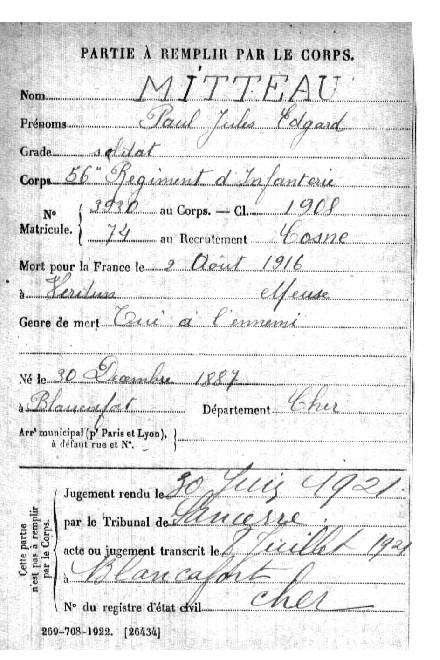 PARTIE À REMPLIR PAR LE CORPS.
Nom MITTEAU
Prénoms Paul Jules Edgard
Grade soldat
Corps 56e Régiment d'Infanterie
N° Matricule. { 3930 au Corps. — Cl. 1908
74 au Recrutement Cosne
Mort pour la France le 2 Août 1916
à Verdun Meuse
Genre de mort Tué à l'ennemi
Né le 30 Décembre 1887
à Blancafort Département Cher
Arrt municipal (pr Paris et Lyon),
à défaut rue et N°.
Cette partie n'est pas à remplir par le Corps.
Jugement rendu le 30 Juin 1921
par le Tribunal de Sancerre
acte ou jugement transcrit le 8 Juillet 1921
à Blancafort
Cher
N° du registre d'état civil
269-708-1922. [26434]